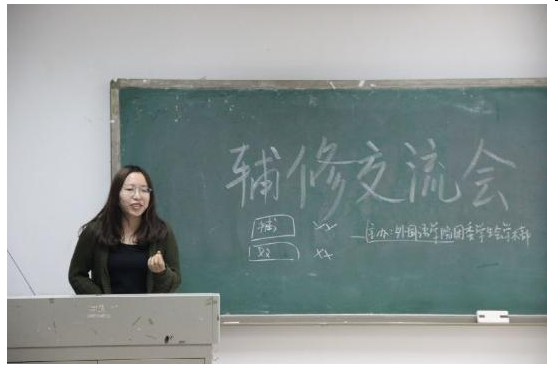 辅修交流会
辅 XX
双 XX
主办:外国语学院团委学生会学术部